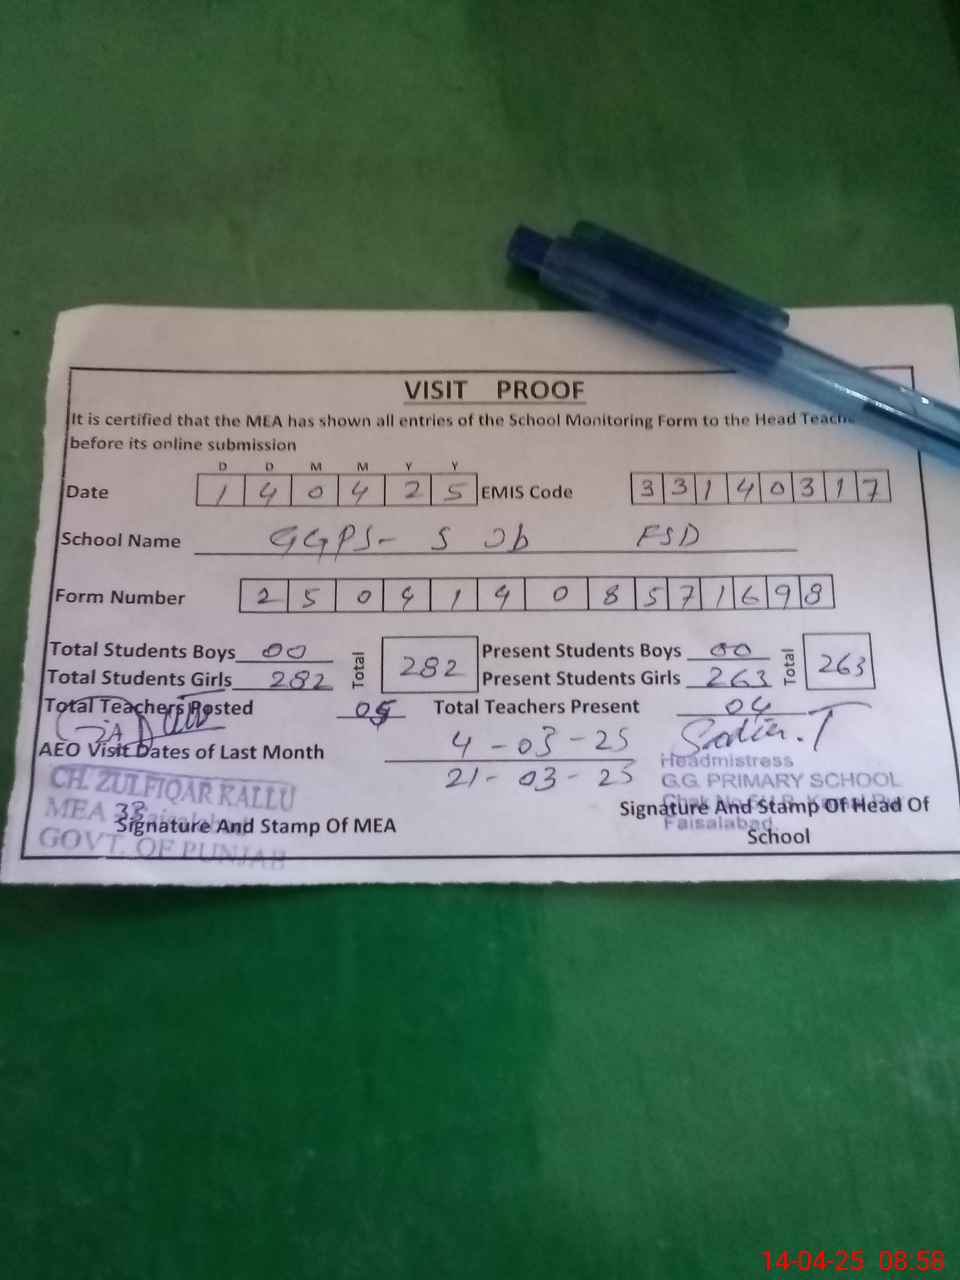 VISIT PROOF
It is certified that the MEA has shown all entries of the School Monitoring Form to the Head Teach
before its online submission
D D M M Y Y
Date 1 4 0 4 2 5 EMIS Code 3 3 1 4 0 3 1 7
School Name GGPS- 5 Jb FSD
Form Number 2 5 0 4 1 4 0 8 5 7 1 6 9 8
Total Students Boys 00 Total 282 Present Students Boys 00 Total 263
Total Students Girls 282 Present Students Girls 263
Total Teachers Posted 05 Total Teachers Present 04
AEO Visit Dates of Last Month 4-03-25
21-03-25
Headmistress
G.G. PRIMARY SCHOOL
Faisalabad
CH. ZULFIQAR RALLU
MEA 38 Faisalabad
GOVT. OF PUNJAB
Signature And Stamp Of MEA
Signature And Stamp Of Head Of
School
14-04-25 08:58